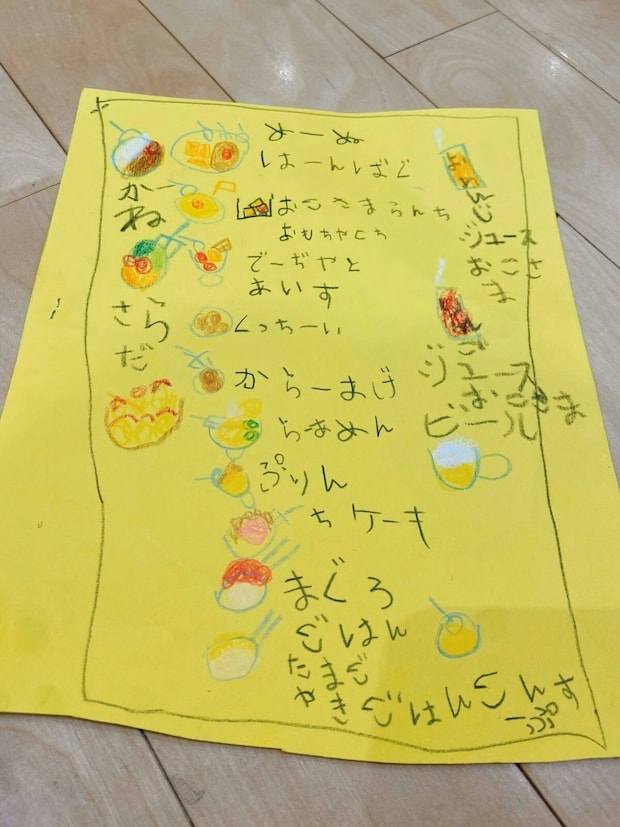 めーぬ
はーんばぐ
おこさまらんち
おもちやとち
でーぢやと
あいす
くっちーい
からーまげ
らあめん
ぷりん
ちケーキ
まぐろ
ごはん
たまご
やき
ごはんこんす
ーぷ
かー
ね
さら
だ
ジュース
おこさ
ま
んご
ジュース
おこさま
ビール